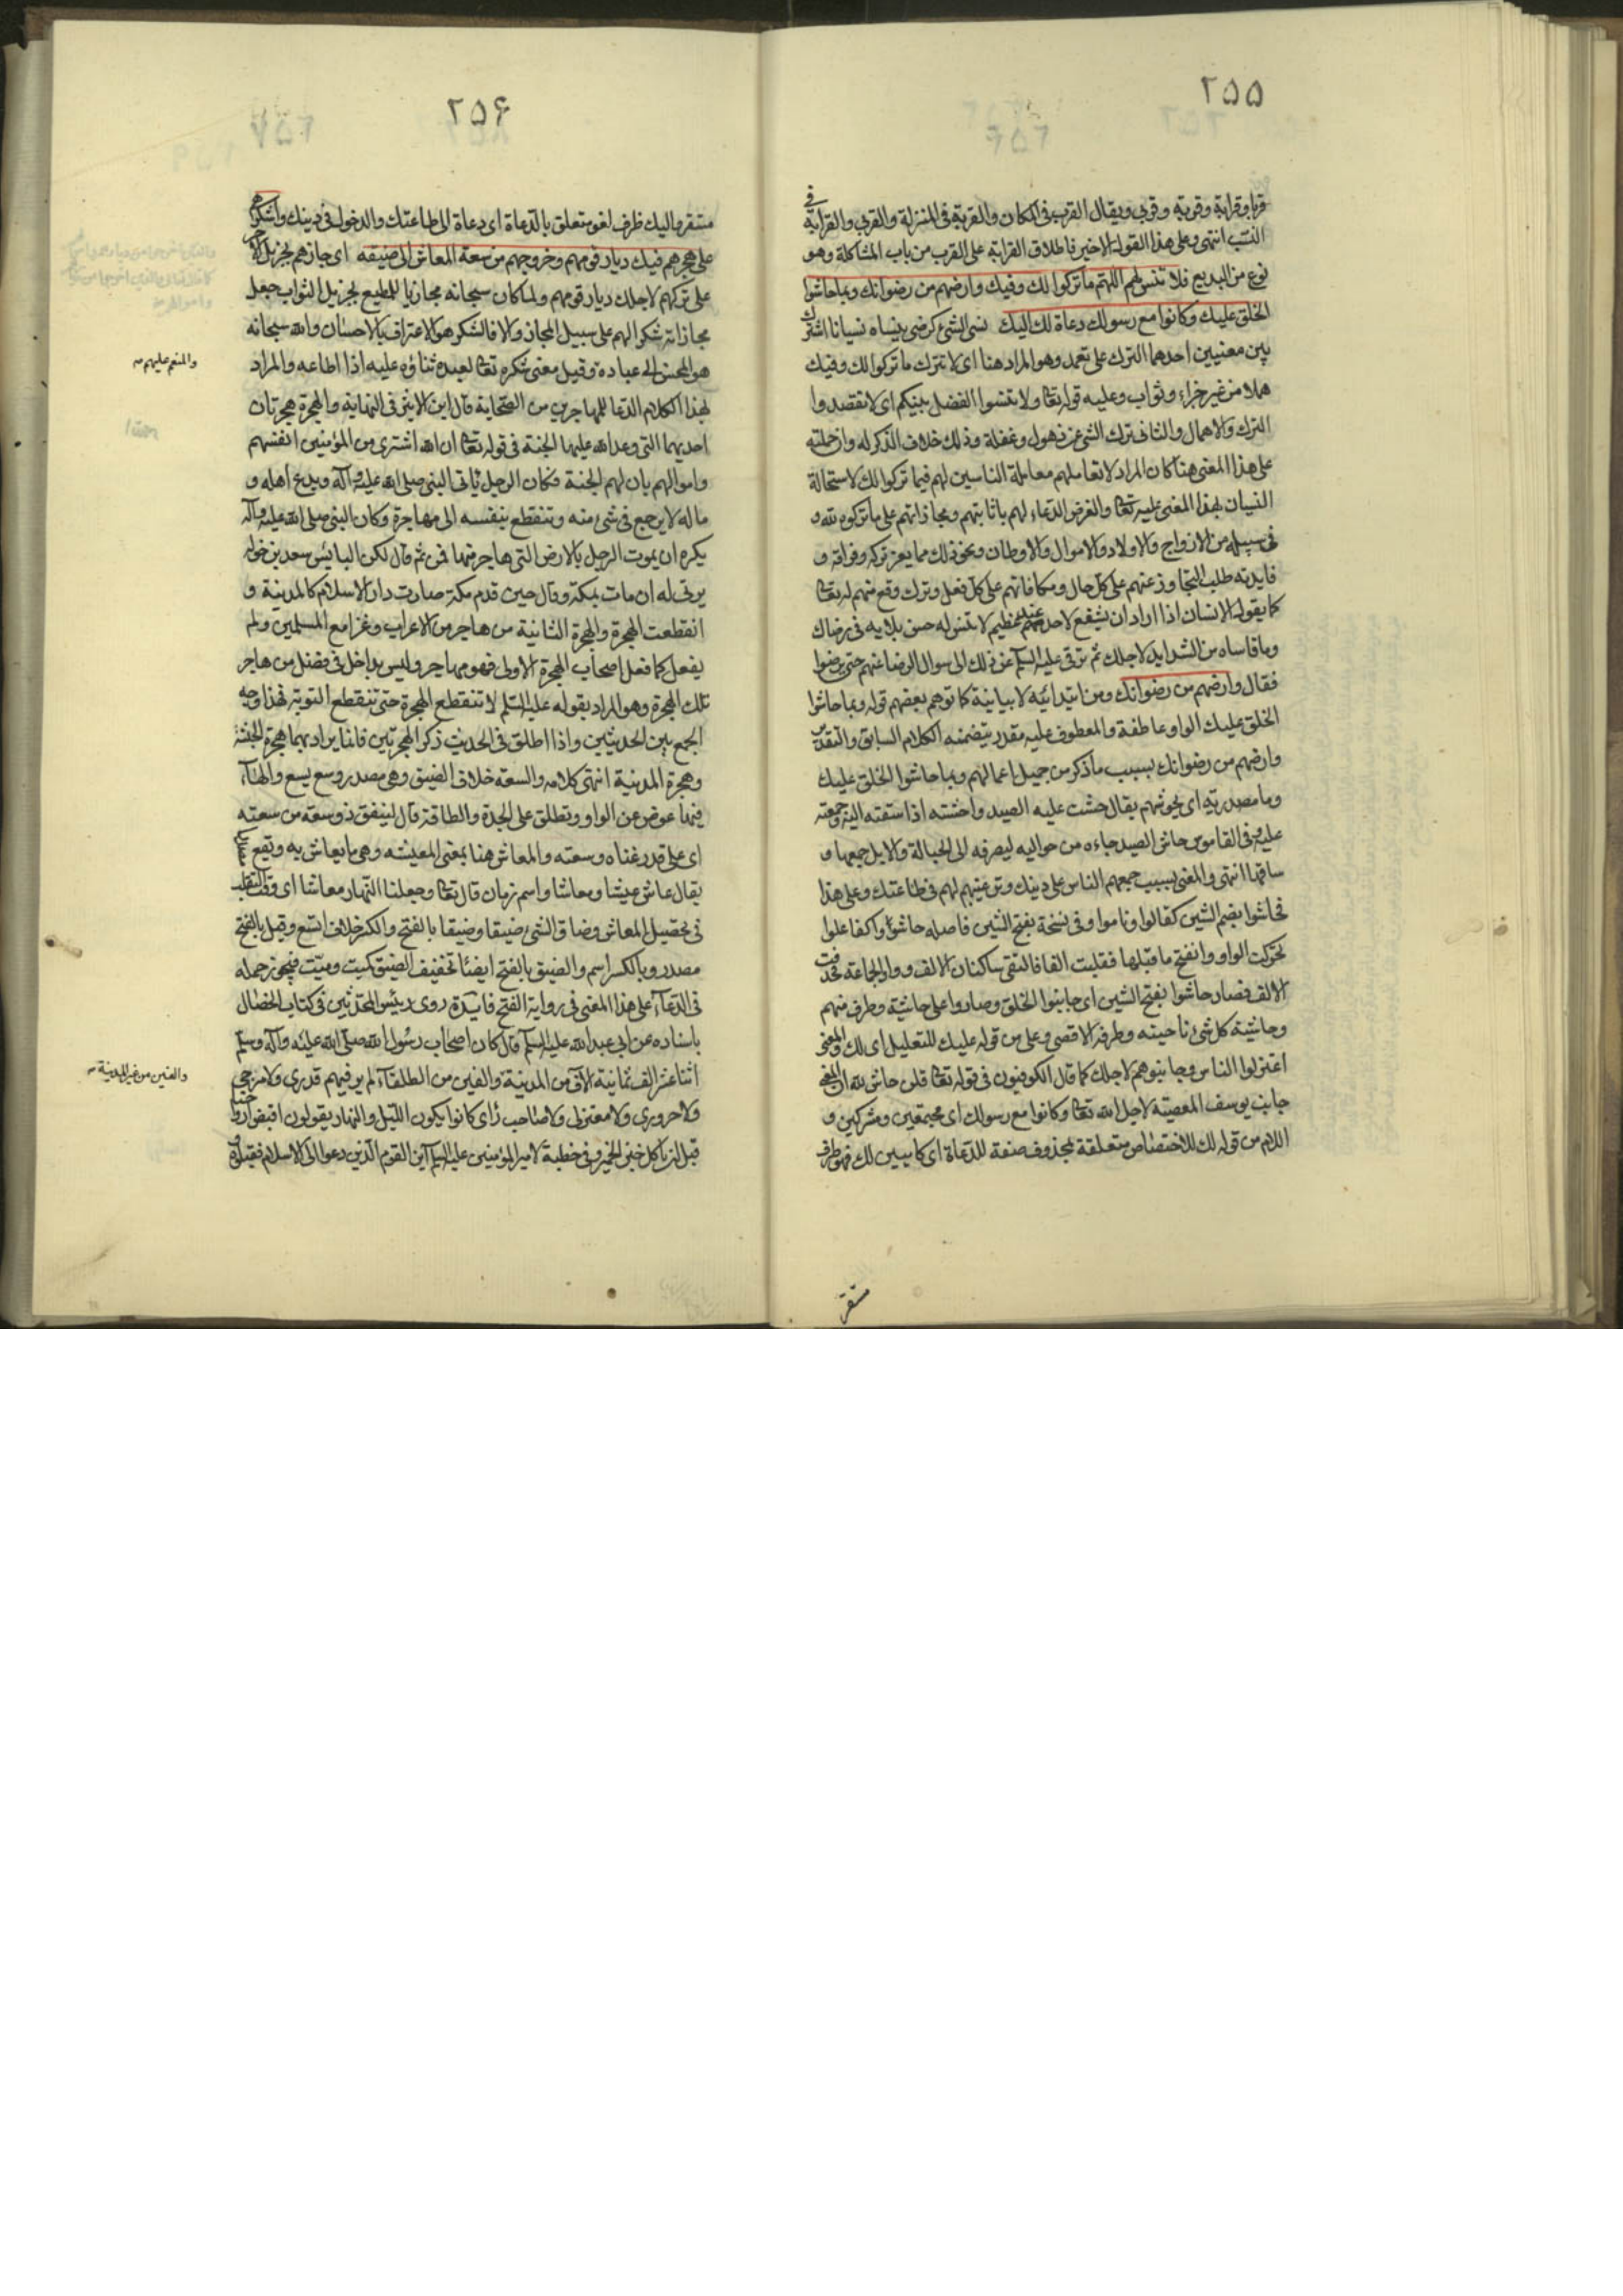 ٢٥٥
قربا وقرابة وقربة وقربى ويقال القرب فى المكان والقربة فى المنزلة والقربى والقرابة فى
النسب انتهى وعلى هذا القول الاخير فاطلاق القرابة على القرب من باب المشاكلة وهو
نوع من البديع فلا تنس لهم اللهم ما تركوا لك وفيك وارضهم من رضوانك وبما حاشوا
الخلق عليك وكانوا مع رسولك دعاة لك اليك نسى الشئ كرضى ينساه نسيانا اشترك
بين معنيين احدهما الترك على تعمد وهو المراد هنا اى لا تترك ما تركوا لك وفيك
هملا من غير جزاء وثواب وعليه قوله تعا ولا تنسوا الفضل بينكم اى لا تقصدوا
الترك والاهمال والثانى ترك الشئ عن ذهول وغفلة وذلك خلاف الذكر له وان حملته
على هذا المعنى هنا كان المراد لا تعاملهم معاملة الناسين لهم فيما تركوا لك لاستحالة
النسيان بهذا المعنى عليه تعا والغرض الدعاء لهم باثابتهم ومجازاتهم على ما تركوه لله و
فى سبيله من الازواج والاولاد والاموال والاوطان ونحو ذلك مما يعز تركه وفراقه و
فايدته طلب التجاوز عنهم على كل حال ومكافاتهم على كل فعل وترك وقع منهم له تعا
كما يقول الانسان اذا اراد ان يشفع لاحد عند عظيم لا تنس له حسن بلايه فى رضاك
وما قاساه من الشدايد لاجلك ثم ترقى عليه السلم عن ذلك الى سوال الرضا عنهم حتى يرضوا
فقال وارضهم من رضوانك ومن ابتدائيه لا بيانية كما توهم بعضهم قوله وبما حاشوا
الخلق عليك الواو عاطفة والمعطوف عليه مقدر يتضمنه الكلام السابق والتقدير
وارضهم من رضوانك بسبب ما ذكر من جميل اعمالهم وبما حاشوا الخلق عليك
وما مصدرية اى بحوشهم يقال حشت عليه الصيد واحشته اذا سقته اليه وجمعته
عليه وفى القاموس حاش الصيد جاءه من حواليه ليصرفه الى الحبالة والابل جمعها و
ساقها انتهى والمعنى بسبب جمعهم الناس على دينك وترغيبهم لهم فى طاعتك وعلى هذا
فحاشوا بضم الشين كقالوا وناموا وفى نسخة بفتح الشين فاصله حاشوا كفاعلوا
تحركت الواو وانفتح ما قبلها فقلبت الفا فالتقى ساكنان الالف وواو الجماعة فحذفت
الالف فصار حاشوا بفتح الشين اى جانبوا الخلق وصاروا على حاشية وطرف منهم
وحاشية كل شئ ناحيته وطرفه الاقصى وعلى من قوله عليك للتعليل اى لك والمعنى
اعتزلوا الناس وجانبوهم لاجلك كما قال الكوفيون فى قوله تعا قلن حاش لله ان المعنى
جانب يوسف المعصية لاجل الله تعا وكانوا مع رسولك اى مجتمعين ومشركين و
اللام من قوله لك للاختصاص متعلقة بمحذوف صفة للدعاة اى كاينين لك فهو ظرف
مستقر
٢٥۶
مستقر واليك ظرف لغو متعلق بالدعاة اى دعاة الى طاعتك والدخول فى دينك واشكرهم
على هجرهم فيك ديار قومهم وخروجهم من سعة المعاش الى ضيقه اى جازهم بجزيل الاجر
على تركهم لاجلك ديار قومهم ولما كان سبحانه مجازيا للمطيع بجزيل الثواب جعل
مجازاته شكرا لهم على سبيل المجاز والا فالشكر هو الاعتراف بالاحسان والله سبحانه
هو المحسن الى عباده وقيل معنى شكره تعا لعبده ثناؤه عليه اذا اطاعه والمراد
والمنعم عليهم
بهذا الكلام الدعا للمهاجرين من الصحابة قال ابن الاثير فى النهاية والهجرة هجرتان
احديهما التى وعد الله عليها الجنة فى قوله تعا ان الله اشترى من المؤمنين انفسهم
واموالهم بان لهم الجنة فكان الرجل ياتى النبى صلى الله عليه وآله ويدع اهله و
ماله لا يرجع فى شئ منه وتنقطع بنفسه الى مهاجره وكان النبى صلى الله عليه وآله
يكره ان يموت الرجل بالارض التى هاجر منها فمن ثم قال لكن البايس سعد بن خوله
يرثى له ان مات بمكة وقال حين قدم مكة صارت دار الاسلام كالمدينة و
انقطعت الهجرة والهجرة الثانية من هاجر من الاعراب وغزا مع المسلمين ولم
يفعل كما فعل اصحاب الهجرة الاولى فهو مهاجر وليس بداخل فى فضل من هاجر
تلك الهجرة وهو المراد بقوله عليه السلم لا تنقطع الهجرة حتى تنقطع التوبة فهذا وجه
الجمع بين الحديثين واذا اطلق فى الحديث ذكر الهجرتين فانما يراد بهما هجرة الحبشة
وهجرة المدينة انتهى كلامه والسعة خلاف الضيق وهى مصدر وسع يسع والهاء
فيها عوض عن الواو وتطلق على الجدة والطاقة قال لينفق ذو سعة من سعته
اى على قدر غناه وسعته والمعاش هنا بمعنى المعيشه وهى ما يعاش به ويقع
يقال عاش عيشا ومعاشا واسم زمان قال تعا وجعلنا النهار معاشا اى وقت التقلب
فى تحصيل المعاش وضاق الشئ ضيقا وضيقا بالفتح والكسر خلاف اتسع وقيل بالفتح
مصدر وبالكسر اسم والضيق بالفتح ايضا تخفيف الضيق كميت وميت فيجوز حمله
فى الدعاء على هذا المعنى فى رواية الفتح فايدة روى رئيس المحدثين فى كتاب الخصال
باسناده عن ابى عبد الله عليه السلم قال كان اصحاب رسول الله صلى الله عليه وآله وسلم
اثنا عشر الف ثمانية الاف من المدينة والفين من الطلقاء لم ير فيهم قدرى ولا مرجى
والفين من غير المدينة
ولا حرورى ولا معتزلى ولا صاحب رأى كانوا يبكون الليل والنهار يقولون اقبض ارواحنا
قبل ان ناكل خبز الخمير وفى خطبة لامير المؤمنين عليه السلم اين القوم الذين دعوا الى الاسلام فقبلوه